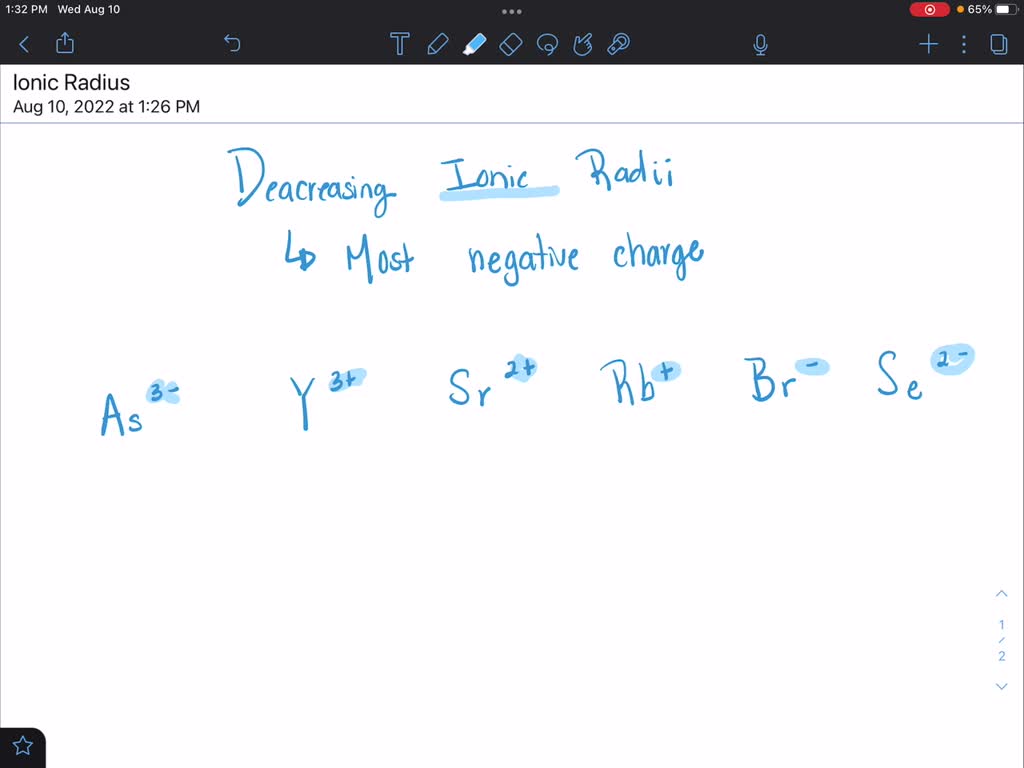 1:32 PM Wed Aug 10
65%
T
Ionic Radius
Aug 10, 2022 at 1:26 PM
Deacreasing Ionic Radii
↳ Most negative charge
As³⁻ Y³⁺ Sr²⁺ Rb⁺ Br⁻ Se²⁻
1
/
2